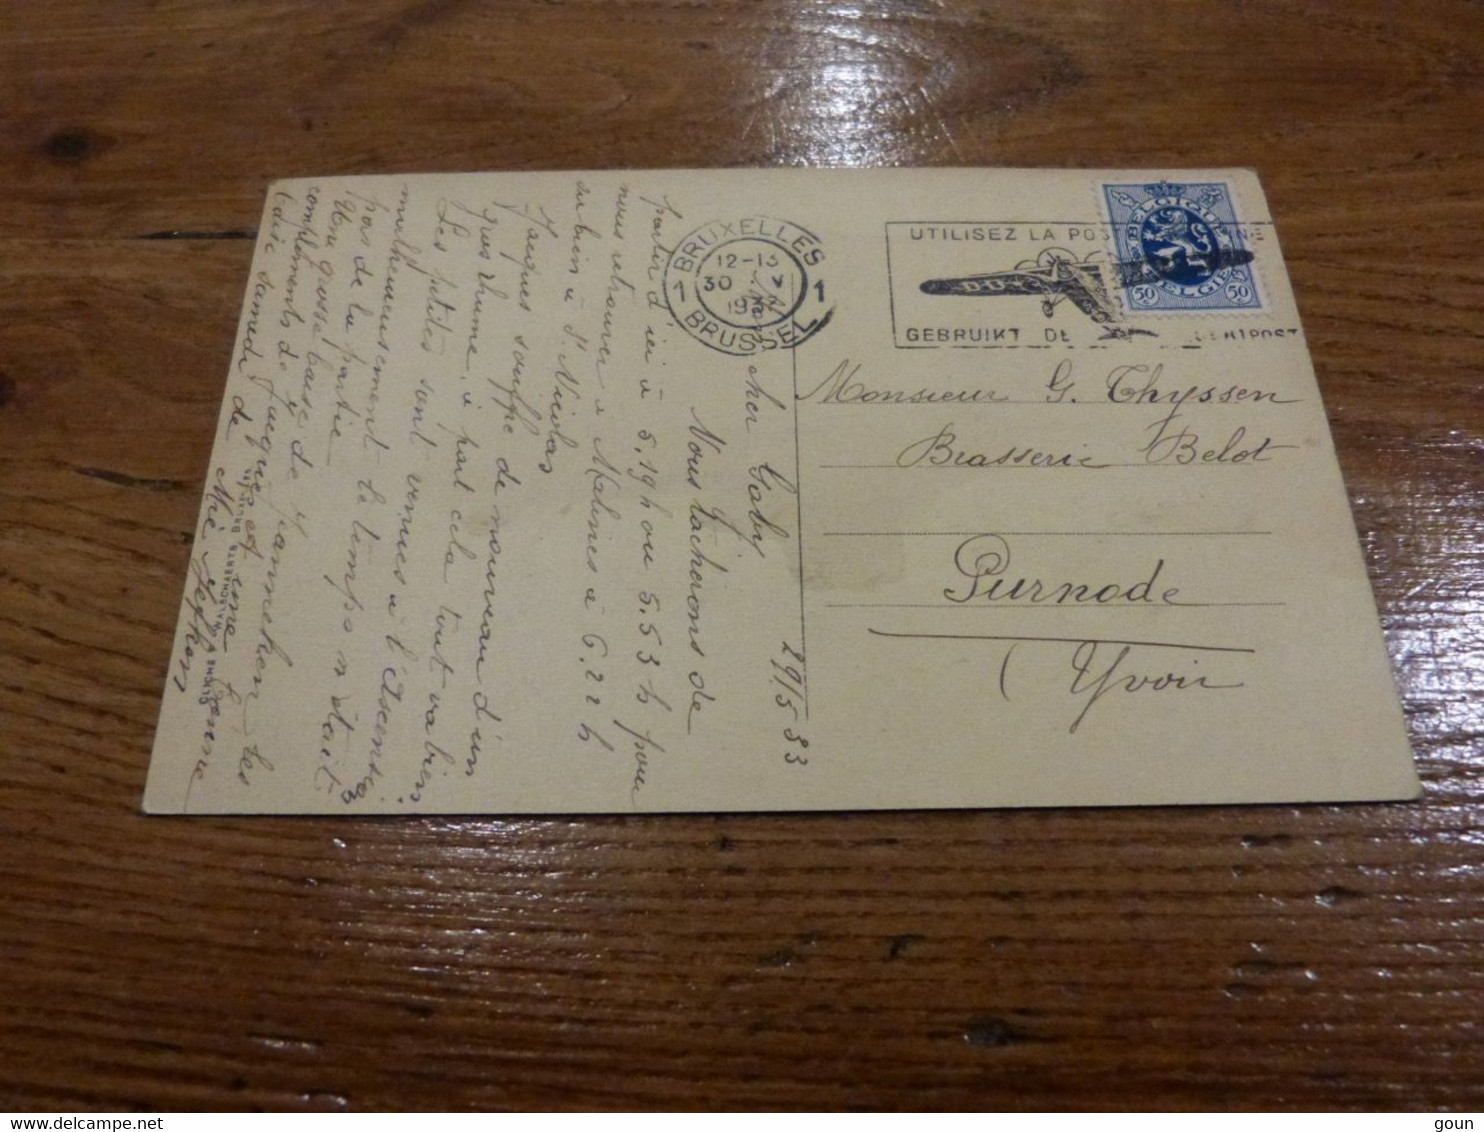 BRUXELLES
12-13
30 V
19
1 1
BRUSSEL
UTILISEZ LA POSTE
GEBRUIKT DE
BELGIQUE
BELGIË
50 50
Monsieur G. Thyssen
Brasserie Belot
Purnode
(Yvoir
29/5 33
Cher Gaby
Nous tâcherons de
partir d'ici à 5.19 h ou 5.53 h pour
nous retrouver à Malines à 6.22 h
ou bien à St Nicolas
Jacques souffre de nouveau d'un
gros rhume, à part cela tout va bien
Les petites sont venues à l'Ascension
malheureusement le temps n'était
pas de la partie
Une grosse baise de Janneken les
compliments de Jacques et
à samedi
goun